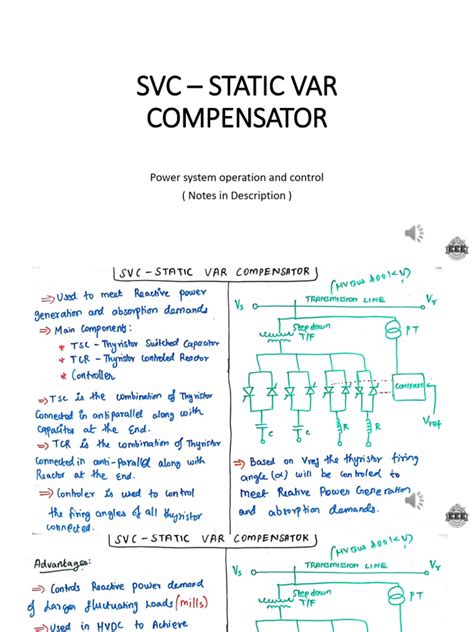 SVC – STATIC VAR
COMPENSATOR
Power system operation and control
( Notes in Description )
EEE
SVC - STATIC VAR COMPENSATOR
⇒ Used to meet Reactive power
generation and absorption demands
⇒ Main Components:
* TSC - Thyristor Switched Capacitor
* TCR - Thyristor Controled Reactor
* Controller
⇒ TSC is the combination of Thyristor
Connected in antiparallel along with
Capacitor at the End.
⇒ TCR is the combination of Thyristor
connected in anti-Parallel along with
Reactor at the End.
⇒ Controler is used to control
the firing angles of all thyristor
connected.
(HV Bus 400KV)
Vs
TRANSMISSION LINE
Vr
Step down
T/F
PT
Vref
C
C
R
R
⇒ Based on Vref the thyristor firing
angle (α) will be controled to
meet Reative Power Generation
and absorption demands.
EEE
SVC - STATIC VAR COMPENSATOR
Advantages:
⇒ Controls Reactive power demand
of Larger fluctuating Loads (mills)
⇒ Used in HVDC to Achieve
(HV Bus 400KV)
Vs
TRANSMISSION LINE
Vr
Step down
T/F
PT